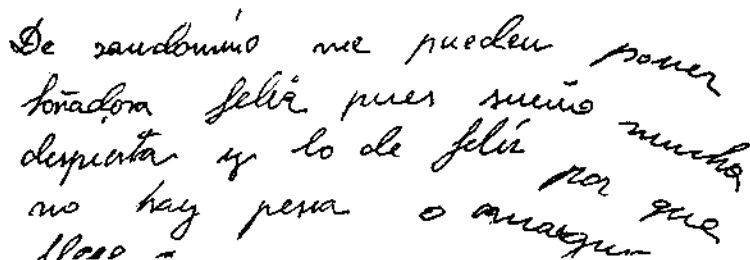 De seudonimo me pueden poner
soñadora feliz pues sueño mucho
despierta y lo de feliz por que
no hay pena o amargu